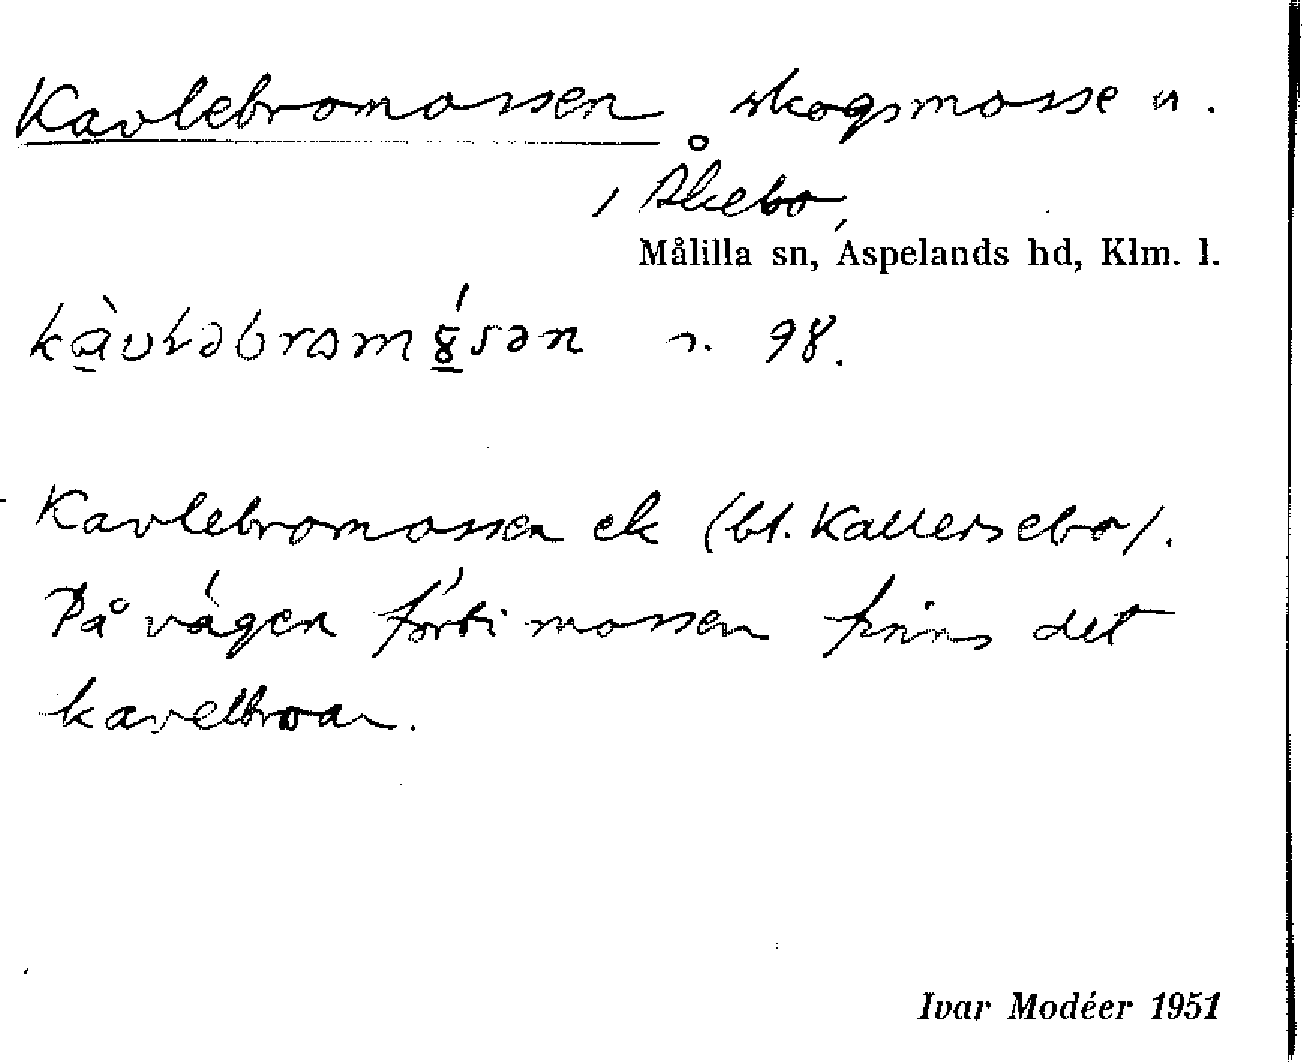 Kavlebromossen skogsmosse n.
i Åkebo,
Målilla sn, Aspelands hd, Klm. l.
98.
Kavlebromossen ek (bl. Kallersebo).
På vägen förbi mossen finns det
kavelbroar.
Ivar Modéer 1951